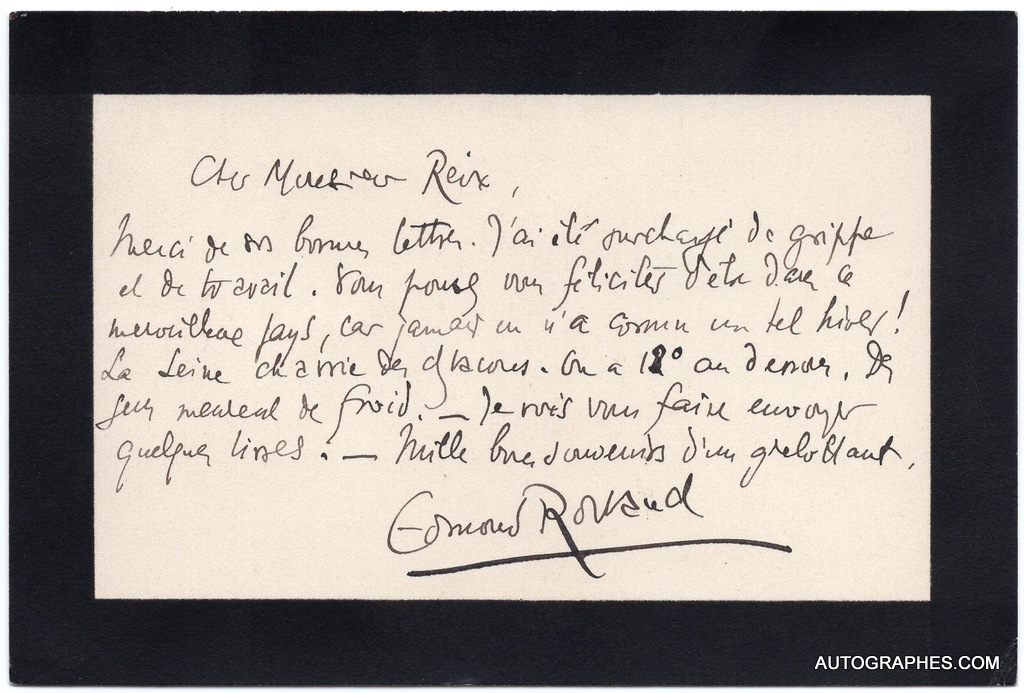 Cher Monsieur Reix,
Merci de vos bonnes lettres. J'ai été surchargé de grippe
et de travail. Vous pouvez vous féliciter d'être dans ce
merveilleux pays, car jamais on n'a connu un tel hiver !
La Seine charrie des glaçons. On a 12° au dessous. Des
gens meurent de froid. — Je vais vous faire envoyer
quelques livres. — Mille bons souvenirs d'un grelottant.
Edmond Rostand
AUTOGRAPHES.COM